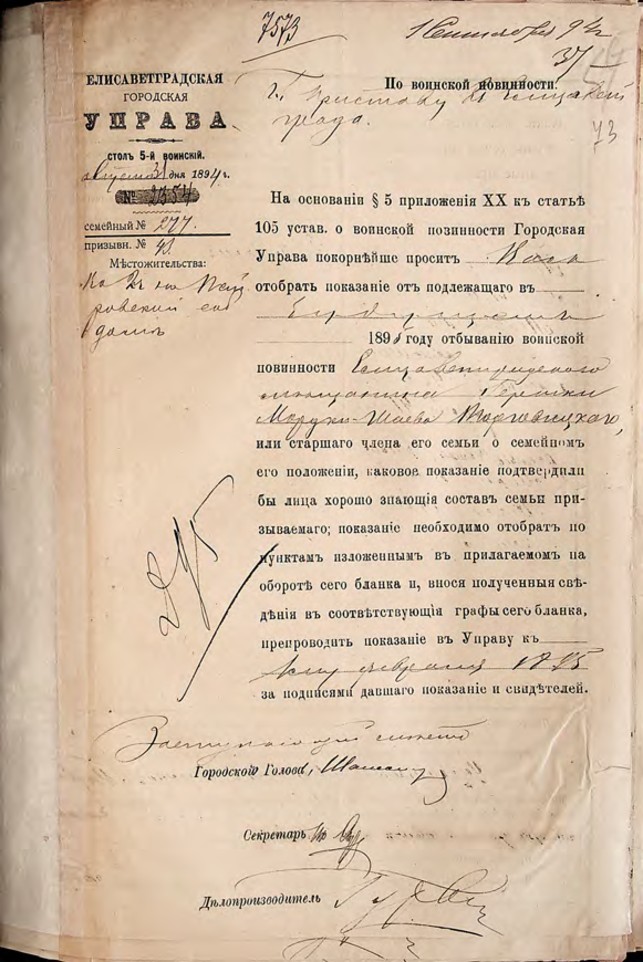 7573
94
37
ЕЛИСАВЕТГРАДСКАЯ
ГОРОДСКАЯ
УПРАВА
СТОЛЪ 5-й ВОИНСКІЙ.
Августа 31 дня 1894 г.
№ 2354
семейный № 277.
призывн. № 43.
Мѣстожительства:
По воинской повинности.
г. Приставу
града.
73
На основаніи § 5 приложенія XX къ статьѣ
105 устав. о воинской повинности Городская
Управа покорнѣйше проситъ Васъ
отобрать показаніе отъ подлежащаго въ
1895 году отбыванію воинской
повинности Елисаветградскаго
мѣщанина Гершки
Мордки-Шаева Торговицкаго,
или старшаго члена его семьи о семейномъ
его положеніи, каковое показаніе подтвердили
бы лица хорошо знающія составъ семьи при-
зываемаго; показаніе необходимо отобрать по
пунктамъ изложеннымъ въ прилагаемомъ на
оборотѣ сего бланка и, внося полученныя свѣ-
дѣнія въ соотвѣтствующія графы сего бланка,
препроводить показаніе въ Управу къ
февраля 1895
за подписями давшаго показаніе и свидѣтелей.
Городского Головы,
Секретарь
Дѣлопроизводитель